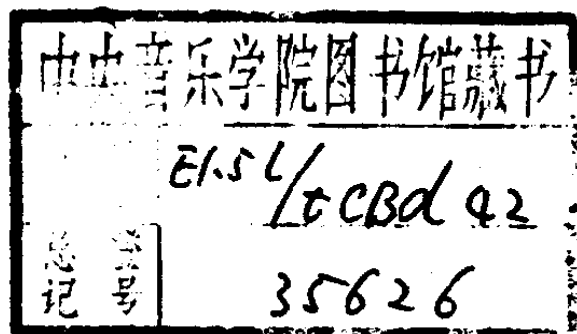 中央音乐学院图书馆藏书
E1.5L/tCBd42
总登记号 35626